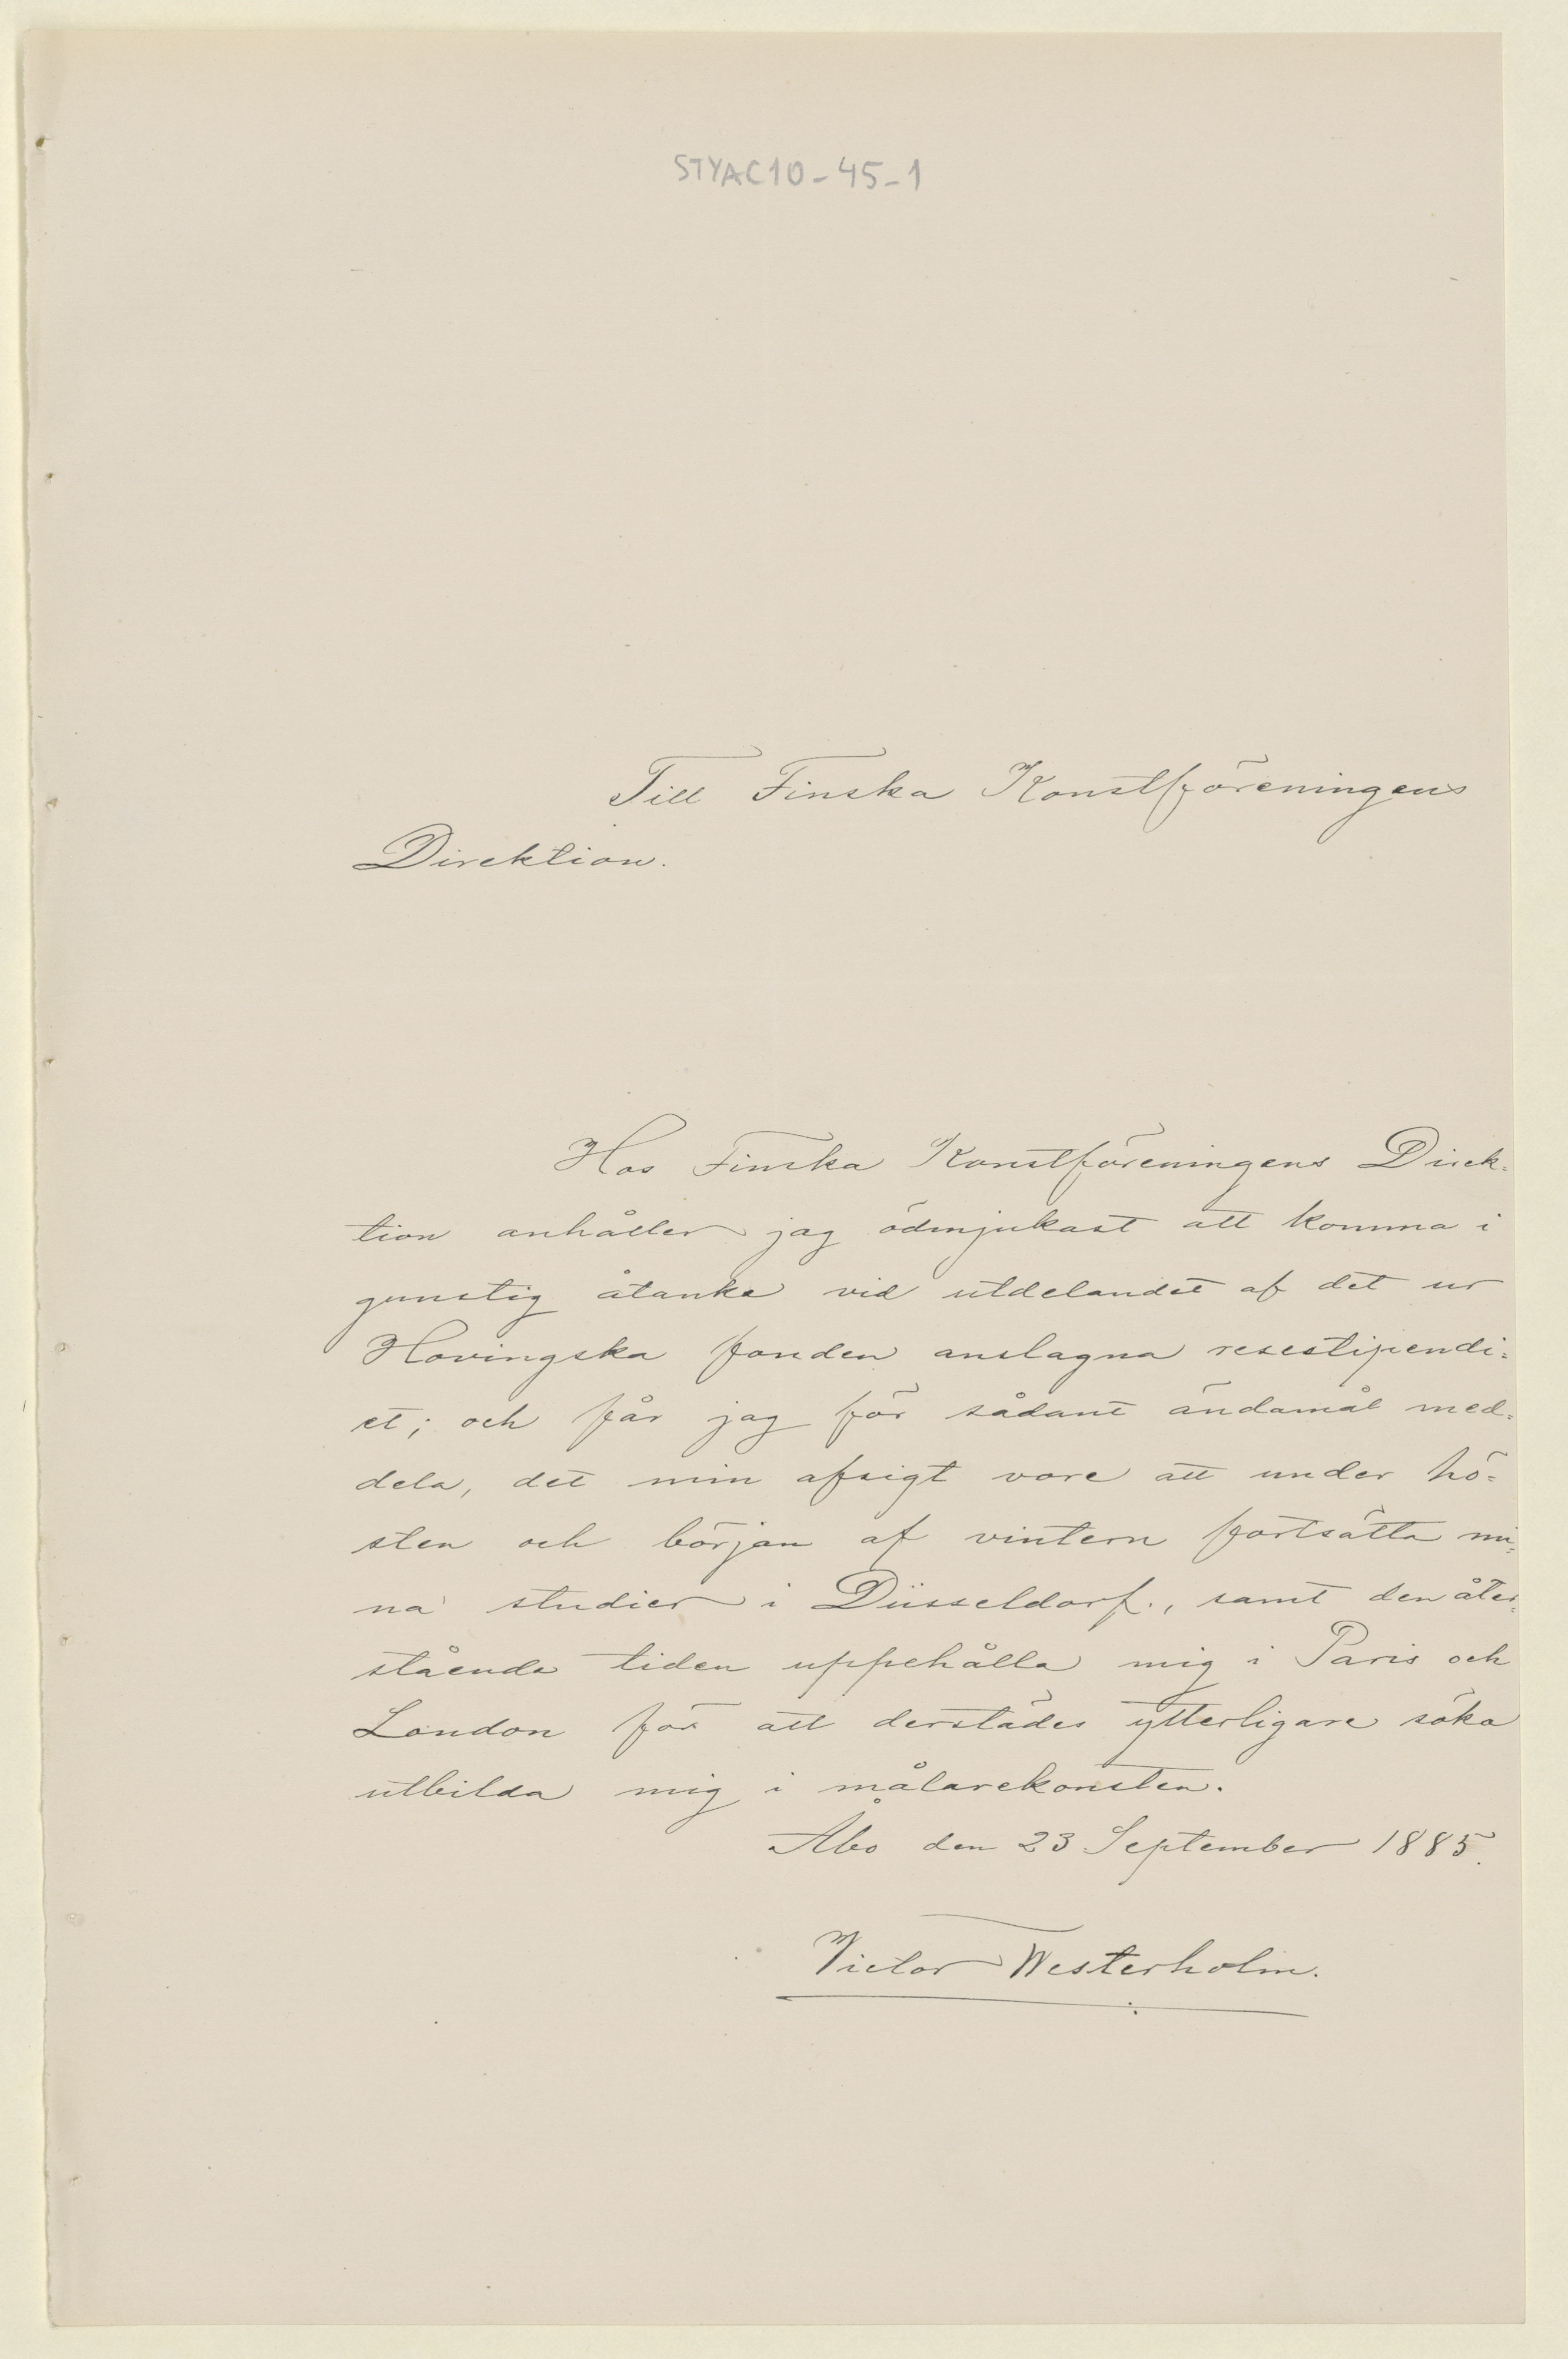 STYAC10-45-1
Till Finska Konstföreningens
Direktion.
Hos Finska Konstföreningens Direk=
tion anhåller jag ödmjukast att komma i
gunstig åtanke vid utdelandet af det ur
Hovingska fonden anslagna resestipendi=
et; och får jag för sådant ändamål med=
dela, det min afsigt vore att under hö=
sten och början af vintern fortsätta mi=
na studier i Düsseldorf., samt den åter=
stående tiden uppehålla mig i Paris och
London för att derstädes ytterligare söka
utbilda mig i målarekonsten.
Åbo den 23 September 1885.
Victor Westerholm.